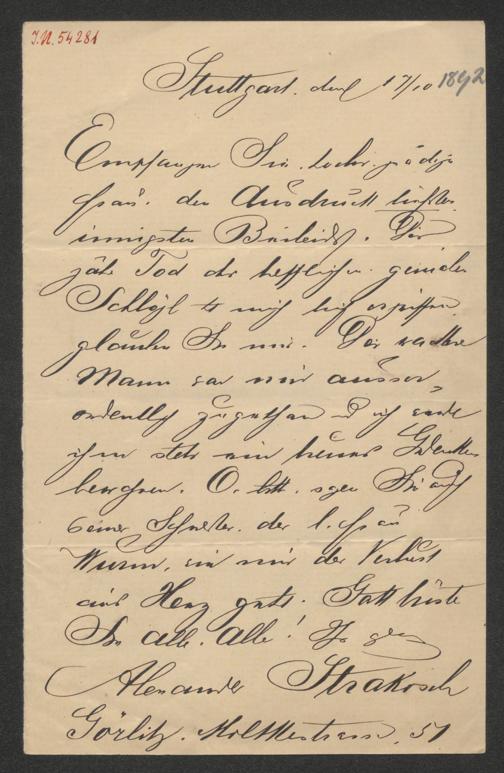 I.N. 54281
Stuttgart. den 17/10 1892
Empfangen Sie. hochv. gnädige
Frau. den Ausdruck tiefsten
innigsten Beileids. Der
jähe Tod des trefflichen. genialen
Schlögl hat mich tief ergriffen.
glauben Sie mir. Der wackere
Mann war mir ausser
ordentlich zugethan u ich werde
ihm stets ein treues Gedenken
bewahren. O. bitt. sagen Sie auch
seiner Schwester. der l. Frau
Wurm, wie mir der Verlust
ans Herz geht. Gott tröste
Sie alle. alle! Ihr
Alexander Strakosch
Görlitz. Moltkestrasse. 51